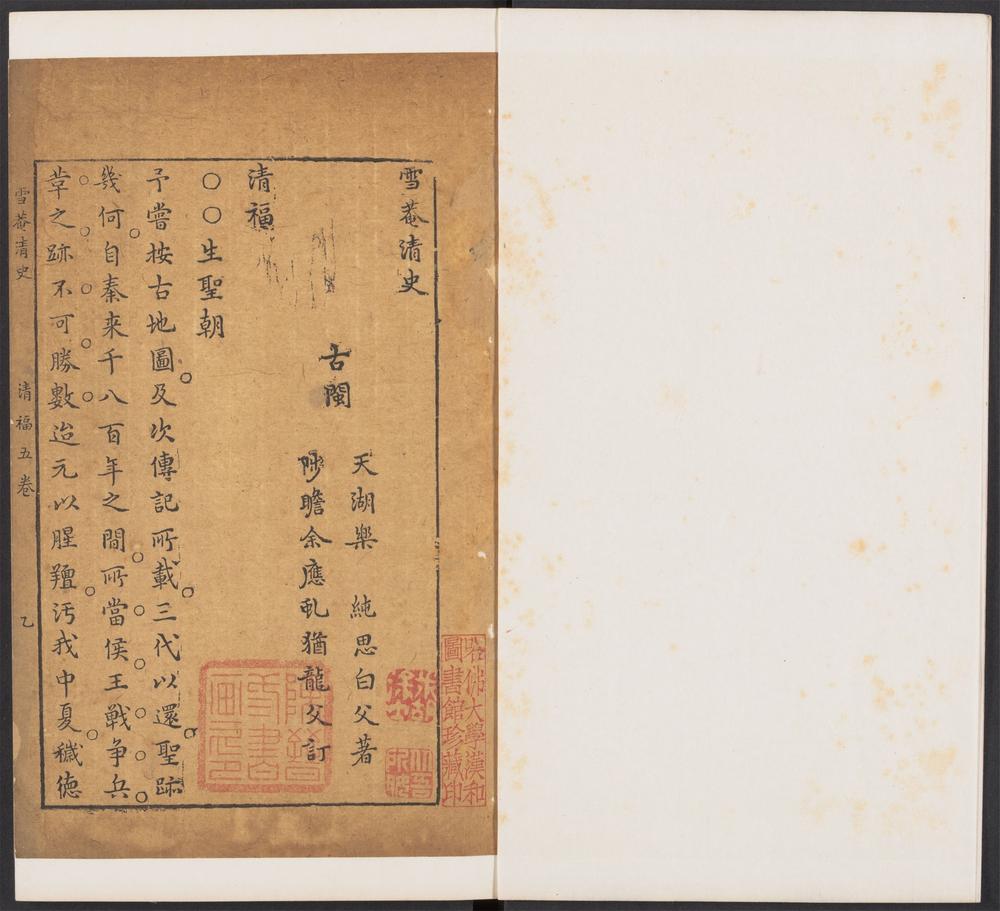 雪菴清史
古閩
天湖樂 純思白父著
瞻余應虬猶龍父訂
清福
○○生聖朝
予嘗按古地圖及次傳記所載三代以還聖跡
幾何自秦来千八百年之間所當侯王戰争兵
革之跡不可勝數迨元以腥羶汚我中夏穢德
雪菴清史
清福五卷
乙
佛大學漢和
圖書館珍藏印